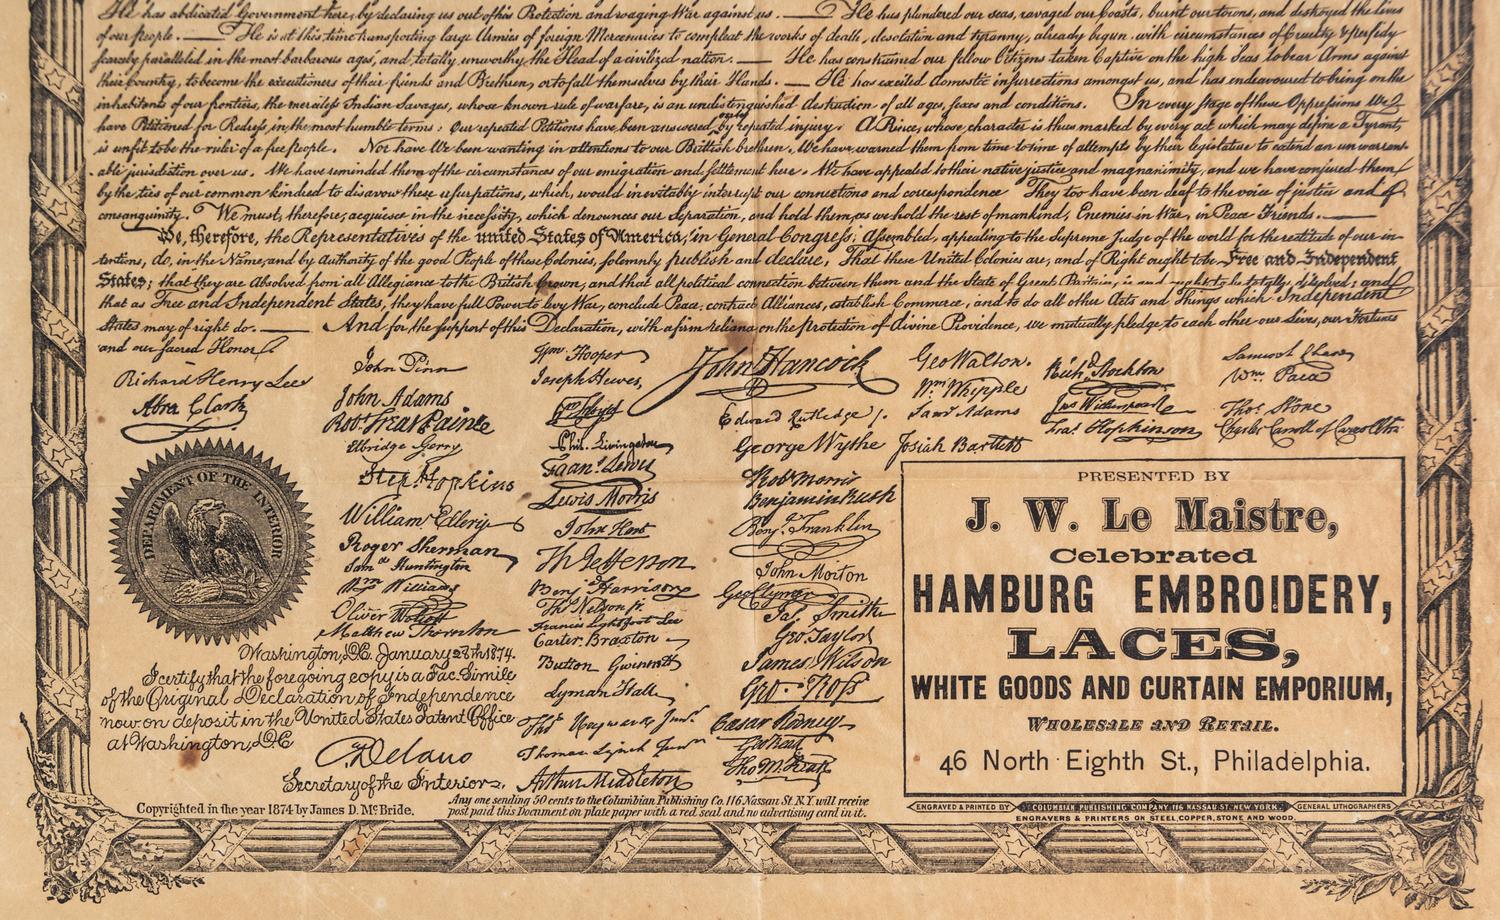 He has abdicated Government here, by declaring us out of his Protection and waging War against us. — He has plundered our seas, ravaged our Coasts, burnt our towns, and destroyed the lives
of our people. — He is at this time transporting large Armies of foreign Mercenaries to compleat the works of death, desolation and tyranny, already begun with circumstances of Cruelty & perfidy
scarcely paralleled in the most barbarous ages, and totally unworthy the Head of a civilized nation. — He has constrained our fellow Citizens taken Captive on the high Seas to bear Arms against
their Country, to become the executioners of their friends and Brethren, or to fall themselves by their Hands. — He has excited domestic insurrections amongst us, and has endeavoured to bring on the
inhabitants of our frontiers, the merciless Indian Savages, whose known rule of warfare, is an undistinguished destruction of all ages, sexes and conditions. In every stage of these Oppressions We
have Petitioned for Redress in the most humble terms: Our repeated Petitions have been answered only by repeated injury. A Prince, whose character is thus marked by every act which may define a Tyrant,
is unfit to be the ruler of a free people. Nor have We been wanting in attentions to our Brittish brethren. We have warned them from time to time of attempts by their legislature to extend an unwarrant-
able jurisdiction over us. We have reminded them of the circumstances of our emigration and settlement here. We have appealed to their native justice and magnanimity, and we have conjured them
by the ties of our common kindred to disavow these usurpations, which, would inevitably interrupt our connections and correspondence They too have been deaf to the voice of justice and of
consanguinity. We must, therefore, acquiesce in the necessity, which denounces our Separation, and hold them, as we hold the rest of mankind, Enemies in War, in Peace Friends. —
We, therefore, the Representatives of the united States of America, in General Congress, Assembled, appealing to the Supreme Judge of the world for the rectitude of our in-
tentions, do, in the Name, and by Authority of the good People of these Colonies, solemnly publish and declare, That these United Colonies are, and of Right ought to be Free and Independent
States; that they are Absolved from all Allegiance to the British Crown, and that all political connection between them and the State of Great Britain, is and ought to be totally dissolved; and
that as Free and Independent States, they have full Power to levy War, conclude Peace, contract Alliances, establish Commerce, and to do all other Acts and Things which Independent
States may of right do. — And for the support of this Declaration, with a firm reliance on the protection of divine Providence, we mutually pledge to each other our Lives, our Fortunes
and our sacred Honor.
Richard Henry Lee
Abra Clark
John Penn
John Adams
Robt Treat Paine
Elbridge Gerry
Step Hopkins
William Ellery
Roger Sherman
Samel Huntington
Wm Williams
Oliver Wolcott
Matthew Thornton
Wm Hooper
Joseph Hewes,
Phil. Livingston
Frans. Lewis
Lewis Morris
John Hart
Th Jefferson
Benj Harrison
Thos Nelson jr.
Francis Lightfoot Lee
Carter Braxton
Button Gwinnett
Lyman Hall
Thos Heyward Junr.
Thomas Lynch Junr
Arthur Middleton
John Hancock
Edward Rutledge /.
George Wythe
Robt Morris
Benjamin Rush
Benj. Franklin
John Morton
Geo Clymer
Jas. Smith
Geo. Taylor
James Wilson
Geo. Ross
Caesar Rodney
Geo Read
Tho M:Kean
Geo Walton.
Wm Whipple
Saml Adams
Josiah Bartlett
Richd. Stockton
Jno Witherspoon
Fras. Hopkinson
Samuel Chase
Wm. Paca
Thos. Stone
Charles Carroll of Carrollton
DEPARTMENT OF THE INTERIOR
Washington, D.C. January 28th 1874.
I certify that the foregoing copy is a Fac. Simile
of the Original Declaration of Independence
now on deposit in the United States Patent Office
at Washington, D.C
C. Delano
Secretary of the Interior.
Copyrighted in the year 1874 by James D. McBride.
Any one sending 50 cents to the Columbian Publishing Co. 116 Nassau St. N.Y. will receive
post paid this Document on plate paper with a red seal and no advertising card in it.
PRESENTED BY
J. W. Le Maistre,
Celebrated
HAMBURG EMBROIDERY,
LACES,
WHITE GOODS AND CURTAIN EMPORIUM,
WHOLESALE AND RETAIL.
46 North Eighth St., Philadelphia.
ENGRAVED & PRINTED BY COLUMBIAN PUBLISHING COMPANY 116 NASSAU ST. NEW YORK. GENERAL LITHOGRAPHERS
ENGRAVERS & PRINTERS ON STEEL, COPPER, STONE AND WOOD.